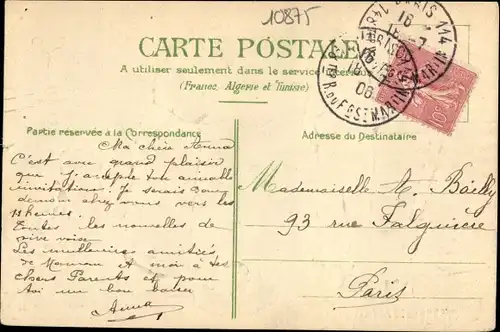 10875
CARTE POSTALE
A utiliser seulement dans le service intérieur
(France, Algérie et Tunisie)
Partie réservée à la Correspondance
Adresse du Destinataire
Ma chère Anna
C'est avec grand plaisir
que j'accepte ton aimable
invitation. Je serais donc
demain chez vous vers les
heures.
Toutes les nouvelles de
vive voix.
Les meilleures amitiés
de Maman et moi à tes
chers Parents et pour
toi un bon baiser
Anna
Mademoiselle A. Bailly
93 rue Falguière
Paris